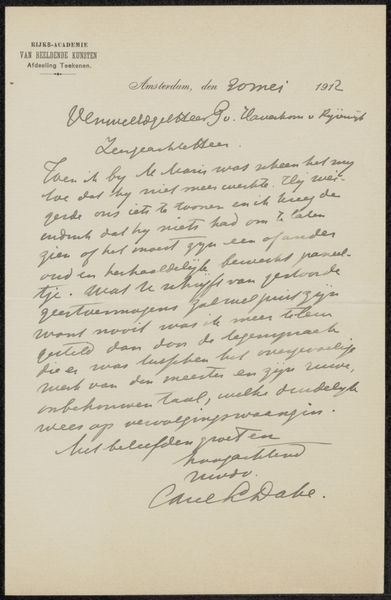 RIJKS-ACADEMIE
VAN BEELDENDE KUNSTEN
Afdeeling Teekenen.
Amsterdam, den 20 mei 1912
v. Haverkorn v Rijswijk
Zeergeachte Heer.
Toen ik bij M. Maris was scheen het mij
toe dat hij niet meer werkte. Hij wei-
gerde ons iets te toonen en ik kreeg den
indruk dat hij niets had om te laten
zien of het moest zijn een of ander
oud en herhaaldelijk bewerkt paneel-
tje. Wat U schrijft van gestoorde
geestvermogens zal wel juist zijn
want nooit was ik meer
gesteld dan door de tegenspraak
die er was tusschen het overgevoelige
werk van den meester en zijn ruwe,
onbehouwen taal, welke duidelijk
wees op vervolgingswaanzin.
Met beleefden groet en
hoogachtend
Uw dv.
Carel L Dake.